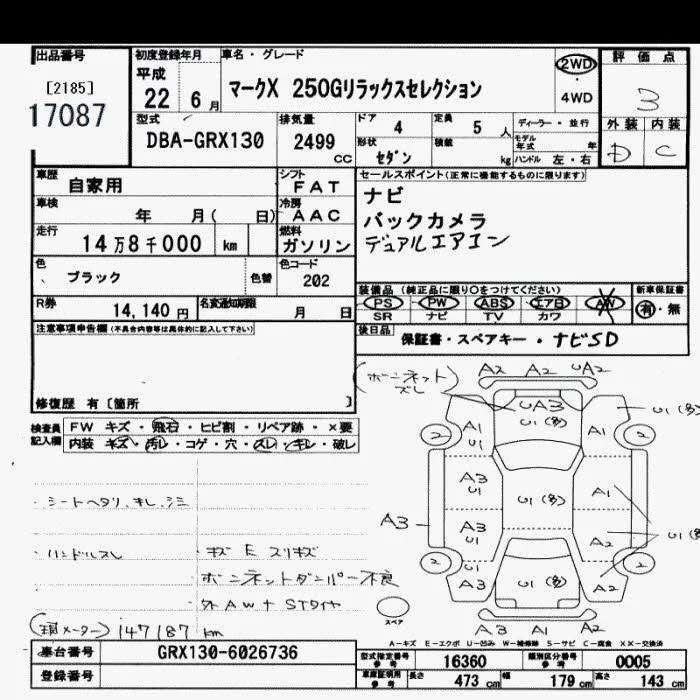 出品番号
[2185]
17087
初度登録年月
平成
22 6月
車名・グレード
マークX 250Gリラックスセレクション
2WD
4WD
評価点
3
外装 内装
D C
型式
DBA-GRX130
排気量
2499
CC
ドア 4
定員 5人
形状 セダン
積載 kg
ディーラー・並行
モデル年式 年
ハンドル 左・右
車歴 自家用
シフト FAT
車検 年 月( 日)
冷房 AAC
走行 14万8千000 km
燃料 ガソリン
色 ブラック
色替
色コード 202
R券 14,140円
名変通知期限 月 日
セールスポイント(正常に機能するものに限ります)
ナビ
バックカメラ
デュアルエアコン
装備品 (純正品に限り○をつけてください)
PS PW ABS エアB AW
SR ナビ TV カワ
新車保証書
有・無
後日品 保証書・スペアキー・ナビSD
注意事項申告欄(不具合内容等は具体的に記入して下さい)
修復歴 有〔箇所 〕
検査員記入欄
FW キズ・飛石・ヒビ割・リペア跡・×要
内装 キズ・汚レ・コゲ・穴・スレ・キレ・破レ
・シートヘタリ、キレ、シミ
・ハンドルスレ
・キズ E スリキズ
・ボンネットダンパー不良
・外AW+STタイヤ
(現メーター) 147187 km
(ボンネットズレ)
A2 A2 UA2
UA3
U1(多)
U1(多)
2 2
A1
U1
A1
A3
U1
U1(多)
A1
A3
A3
U1
A2
U1(多)
2 2
U1
A3
U1(多)
A2
スペア
A3 A1 A2
A-キズ E-エクボ U-凹み W-補修跡 S-サビ C-腐食 XX-交換済
車台番号 GRX130-6026736
登録番号
型式指定番号 参考 16360
類別区分番号 参考 0005
車庫証明用 参考 長さ 473cm 幅 179cm 高さ 143cm